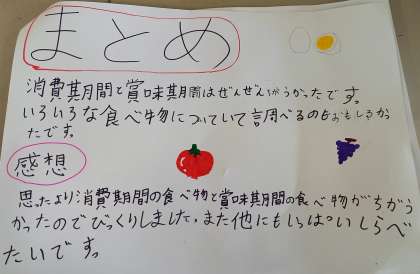 まとめ
消費期間と賞味期間はぜんぜんちがうかったです。
いろいろな食べ物についていて調べるのもおもしろかっ
たです。
感想
思ったより消費期間の食べ物と賞味期間の食べ物がちがう
かったのでびっくりしました、また他にもいっぱいしらべ
たいです。